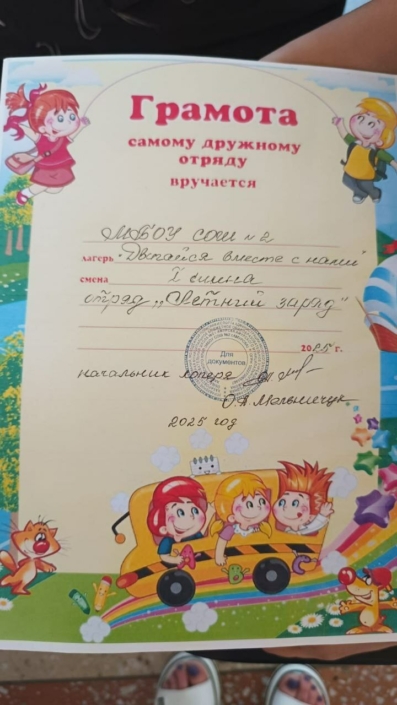 Грамота
самому дружному
отряду
вручается
МБОУ СОШ № 2
лагерь "Двигайся вместе с нами"
смена I смена
отряд "Летний заряд"
2025 г.
Для
документов
начальник лагеря
О.А Мельничук
2025 год
A B C